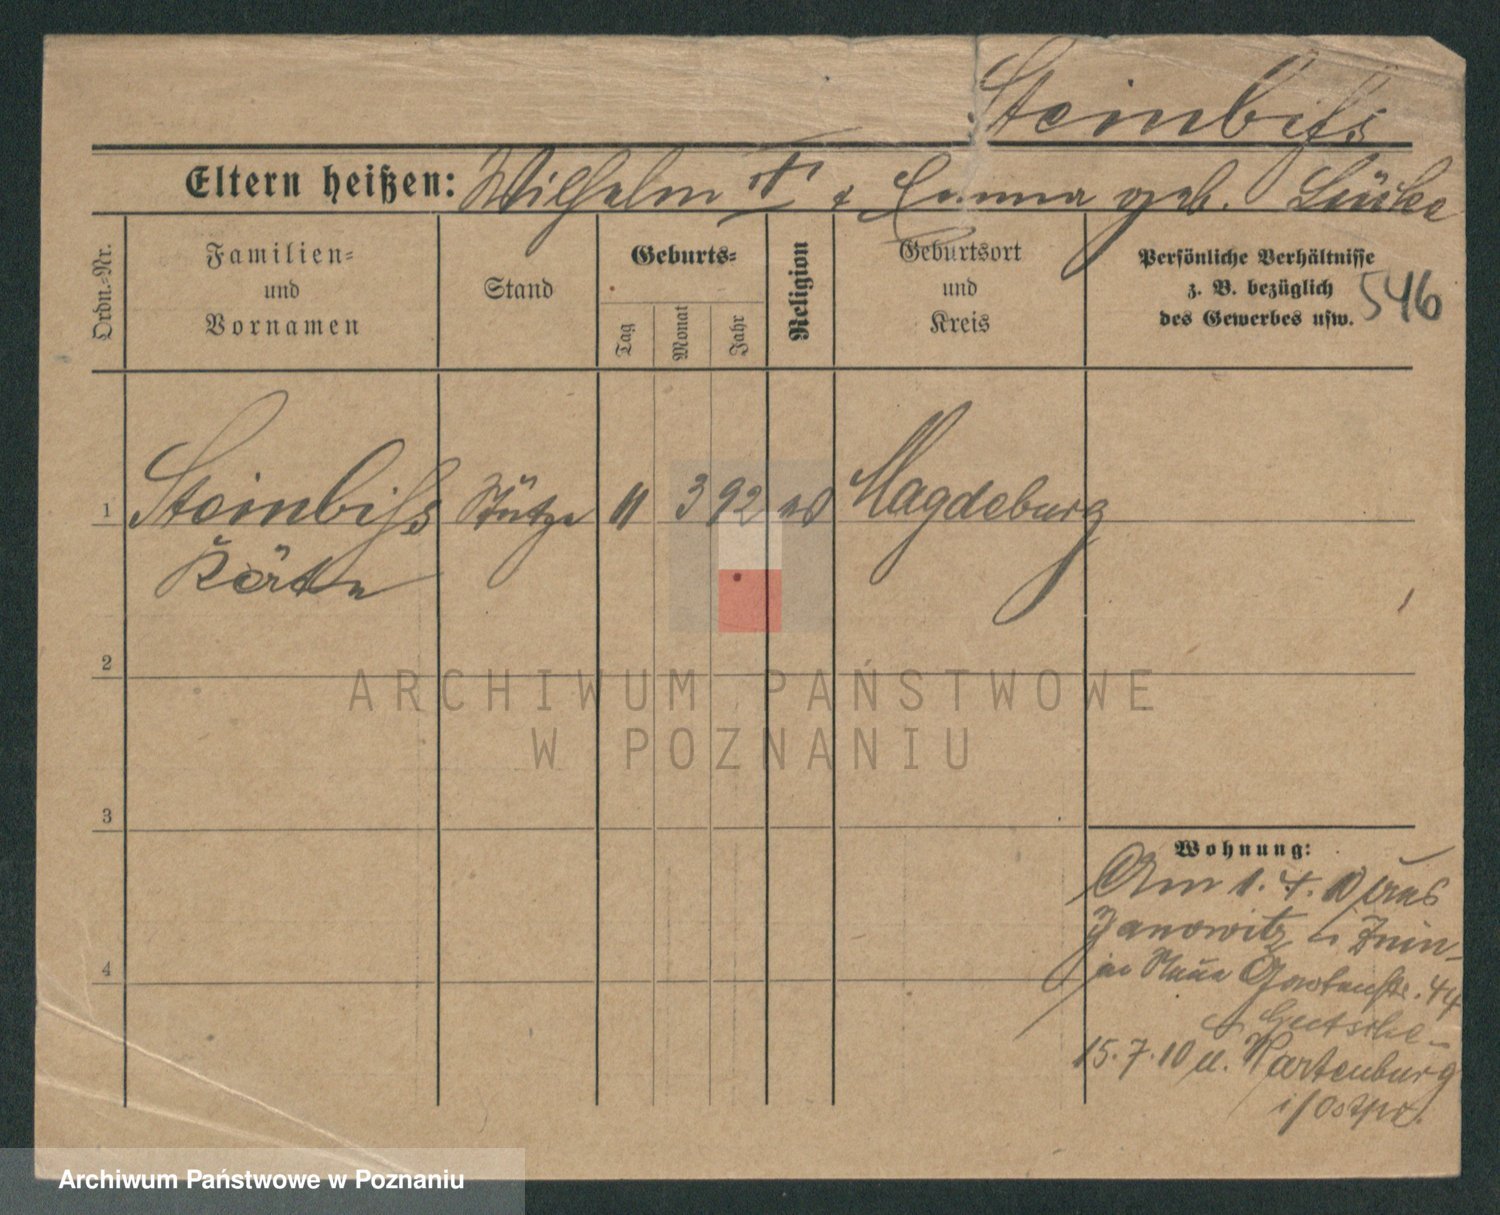 Steinbiß
Eltern heißen: Wilhelm & Emma geb. Lücke
Ordn.-Nr.
Familien-
und
Vornamen
Stand
Geburts-
Tag
Monat
Jahr
Religion
Geburtsort
und
Kreis
Persönliche Verhältnisse
z. B. bezüglich
des Gewerbes usw.
546
1 Steinbiß Stütze 11 3 92 Magdeburg
Käthe
2
3
4
ARCHIWUM PAŃSTWOWE
W POZNANIU
Wohnung:
Am 1. 4. 10 aus
Janowitz Znin
Gartenstr. 44
15. 7. 10 n. Wartenburg
i/Ostpr.
Archiwum Państwowe w Poznaniu